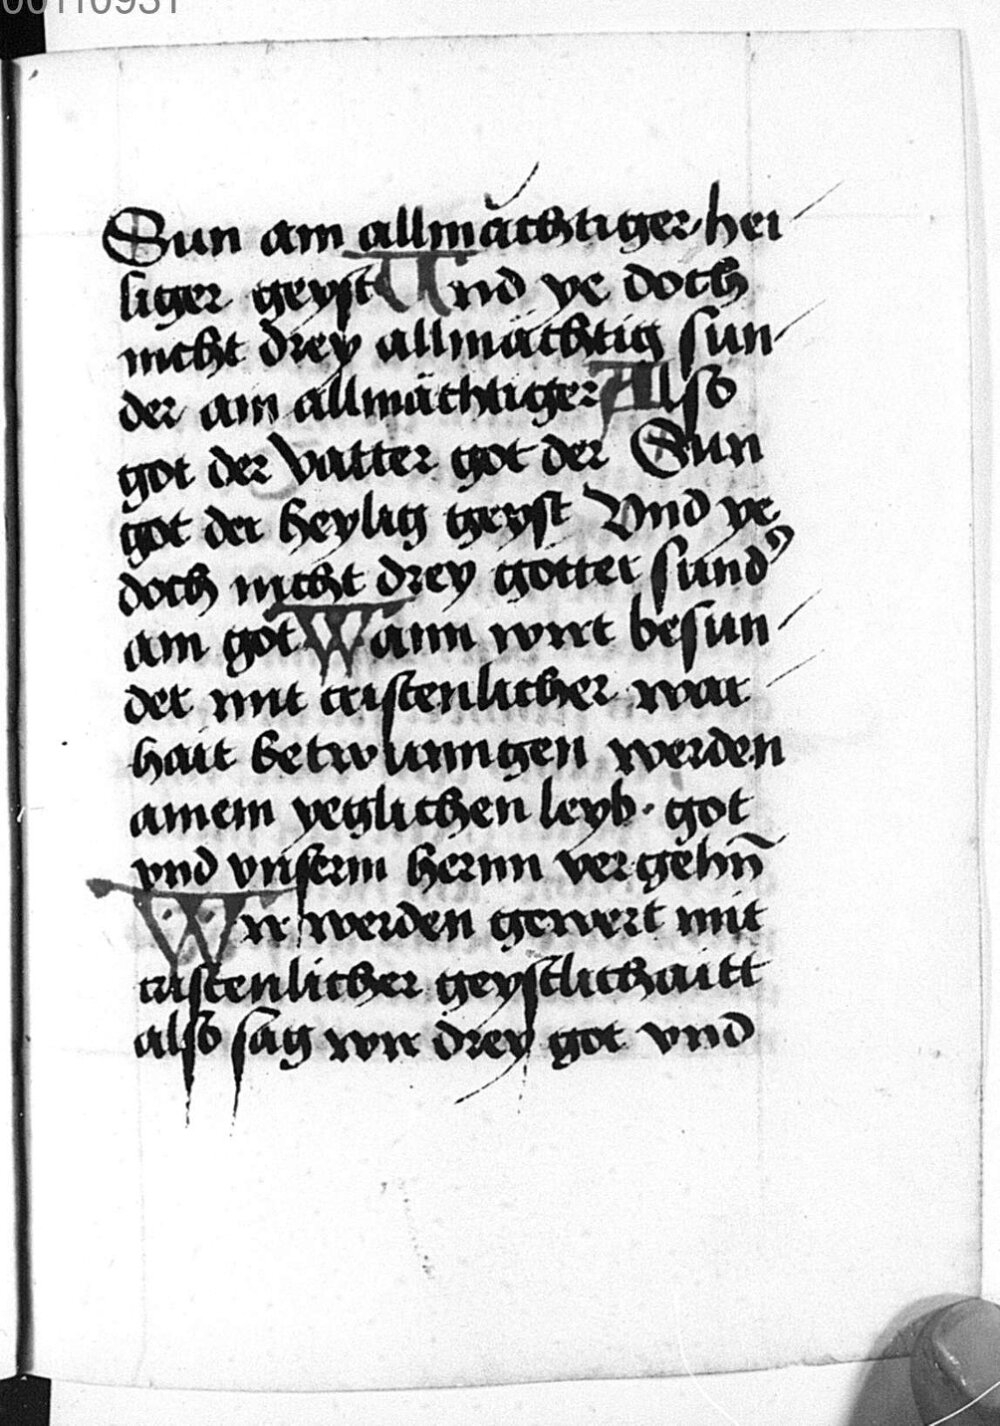 00110931
Sun ain allmächtiger hei
liger geyst Und ye doch
nicht drey allmächtig sun
der ain allmächtiger Also
got der vatter got der Sun
got der heylig geyst Vnd ye
doch nicht drey gotter sund
ain got Wann wirt besun
der mit cristenlicher war
hait betwunngen werden
ainem yeglichen leyb · got
vnd vnserm hernn vergehn̄
Wir werden gewert mit
cristenlicher geystlichaitt
also sag wir drey got vnd